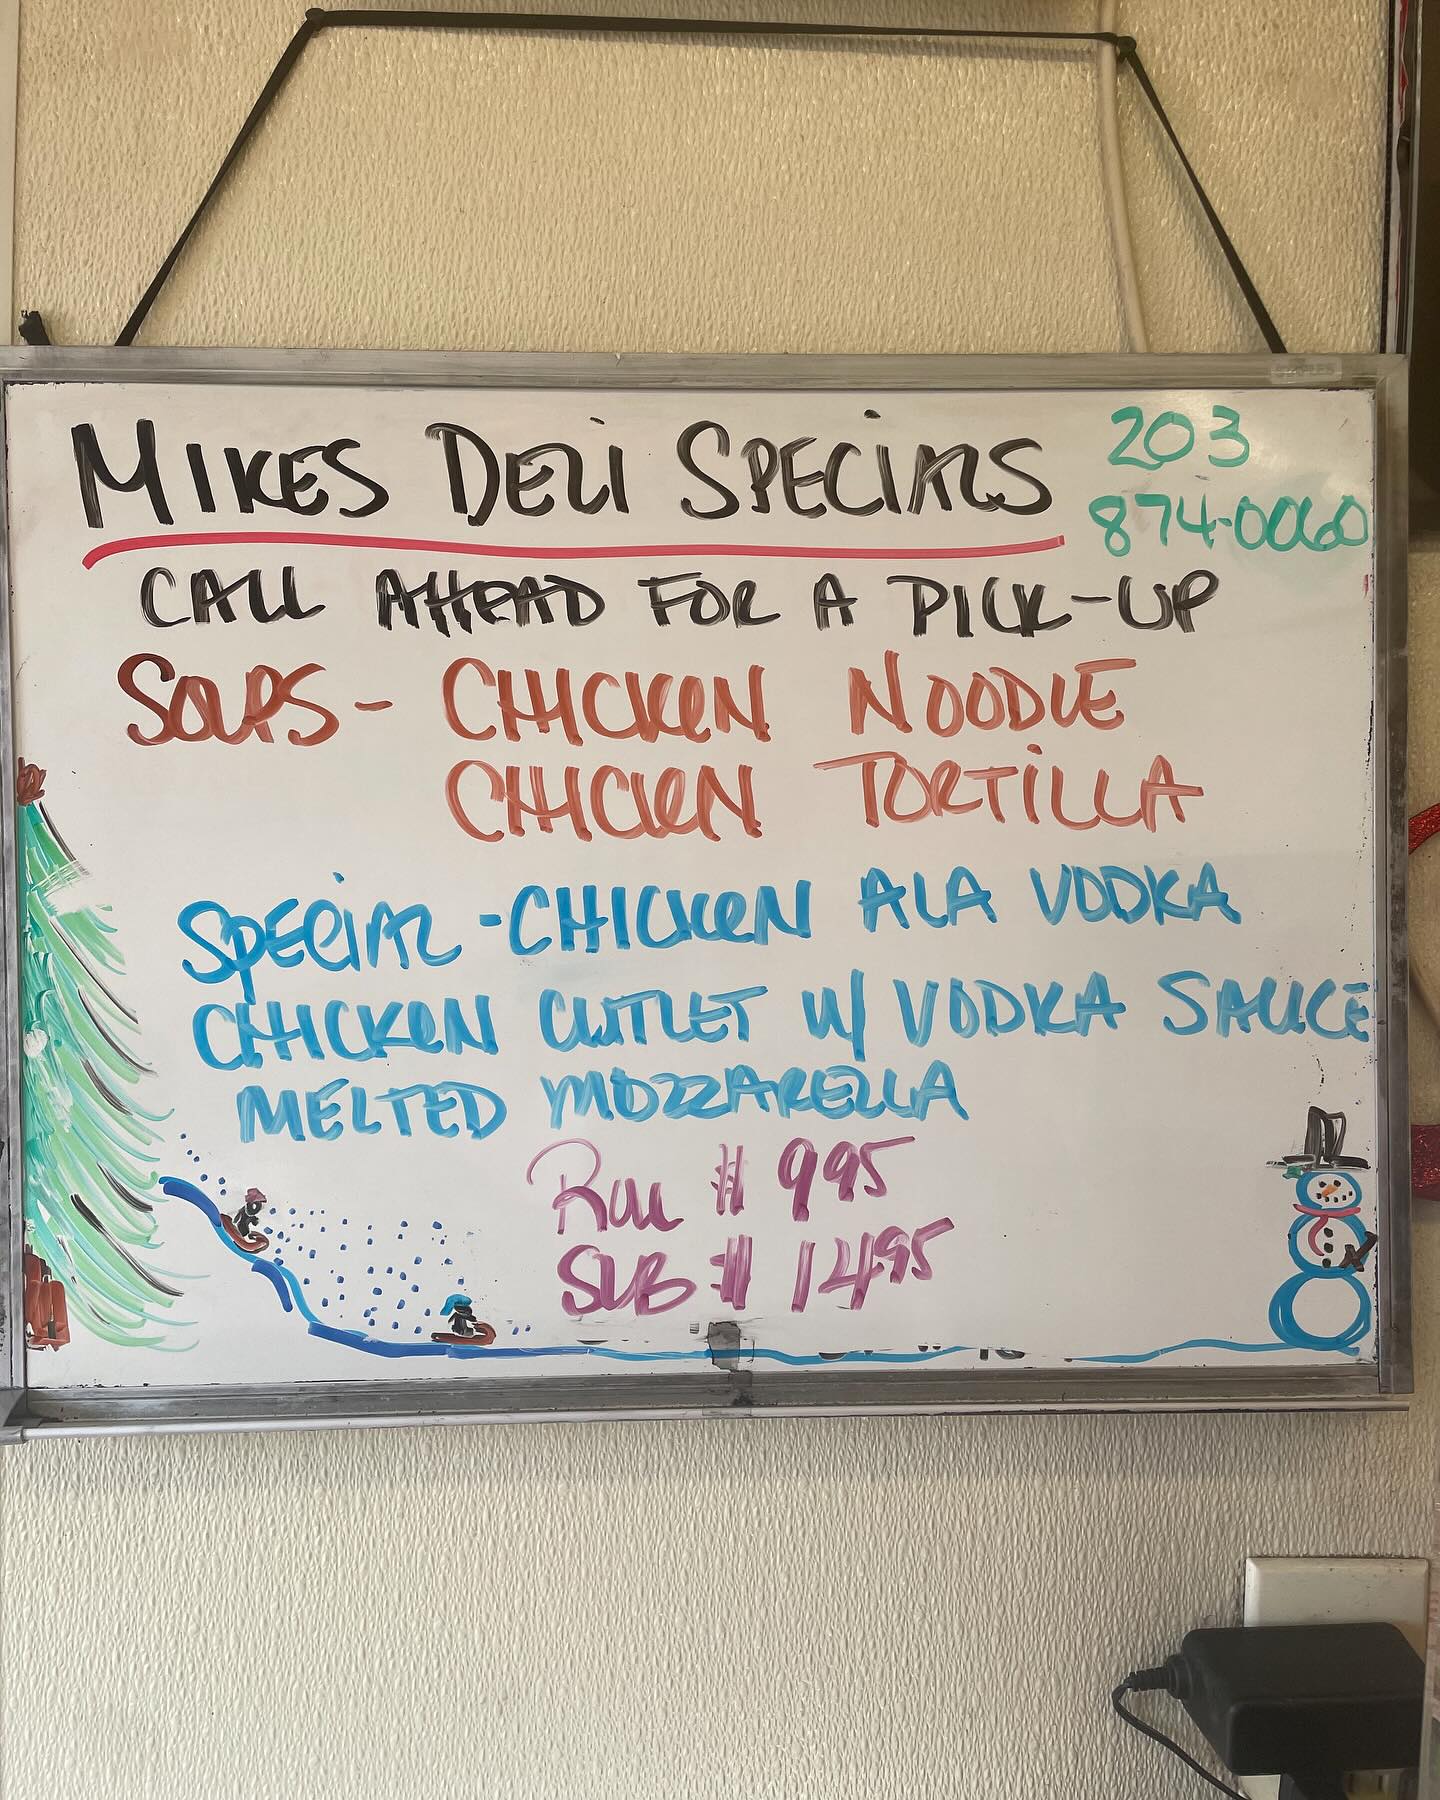 MIKES DELi SPECiALS
203
874-0060
CALL AHEAD FOR A PICK-UP
SOUPS - CHICKEN NOODLE
CHICKEN TORTiLLA
SPECiAL - CHICKEN ALA VODKA
CHICKEN CUTLET W/ VODKA SAUCE
MELTED MOZZARELLA
Roll $ 9.95
SUB $ 14.95